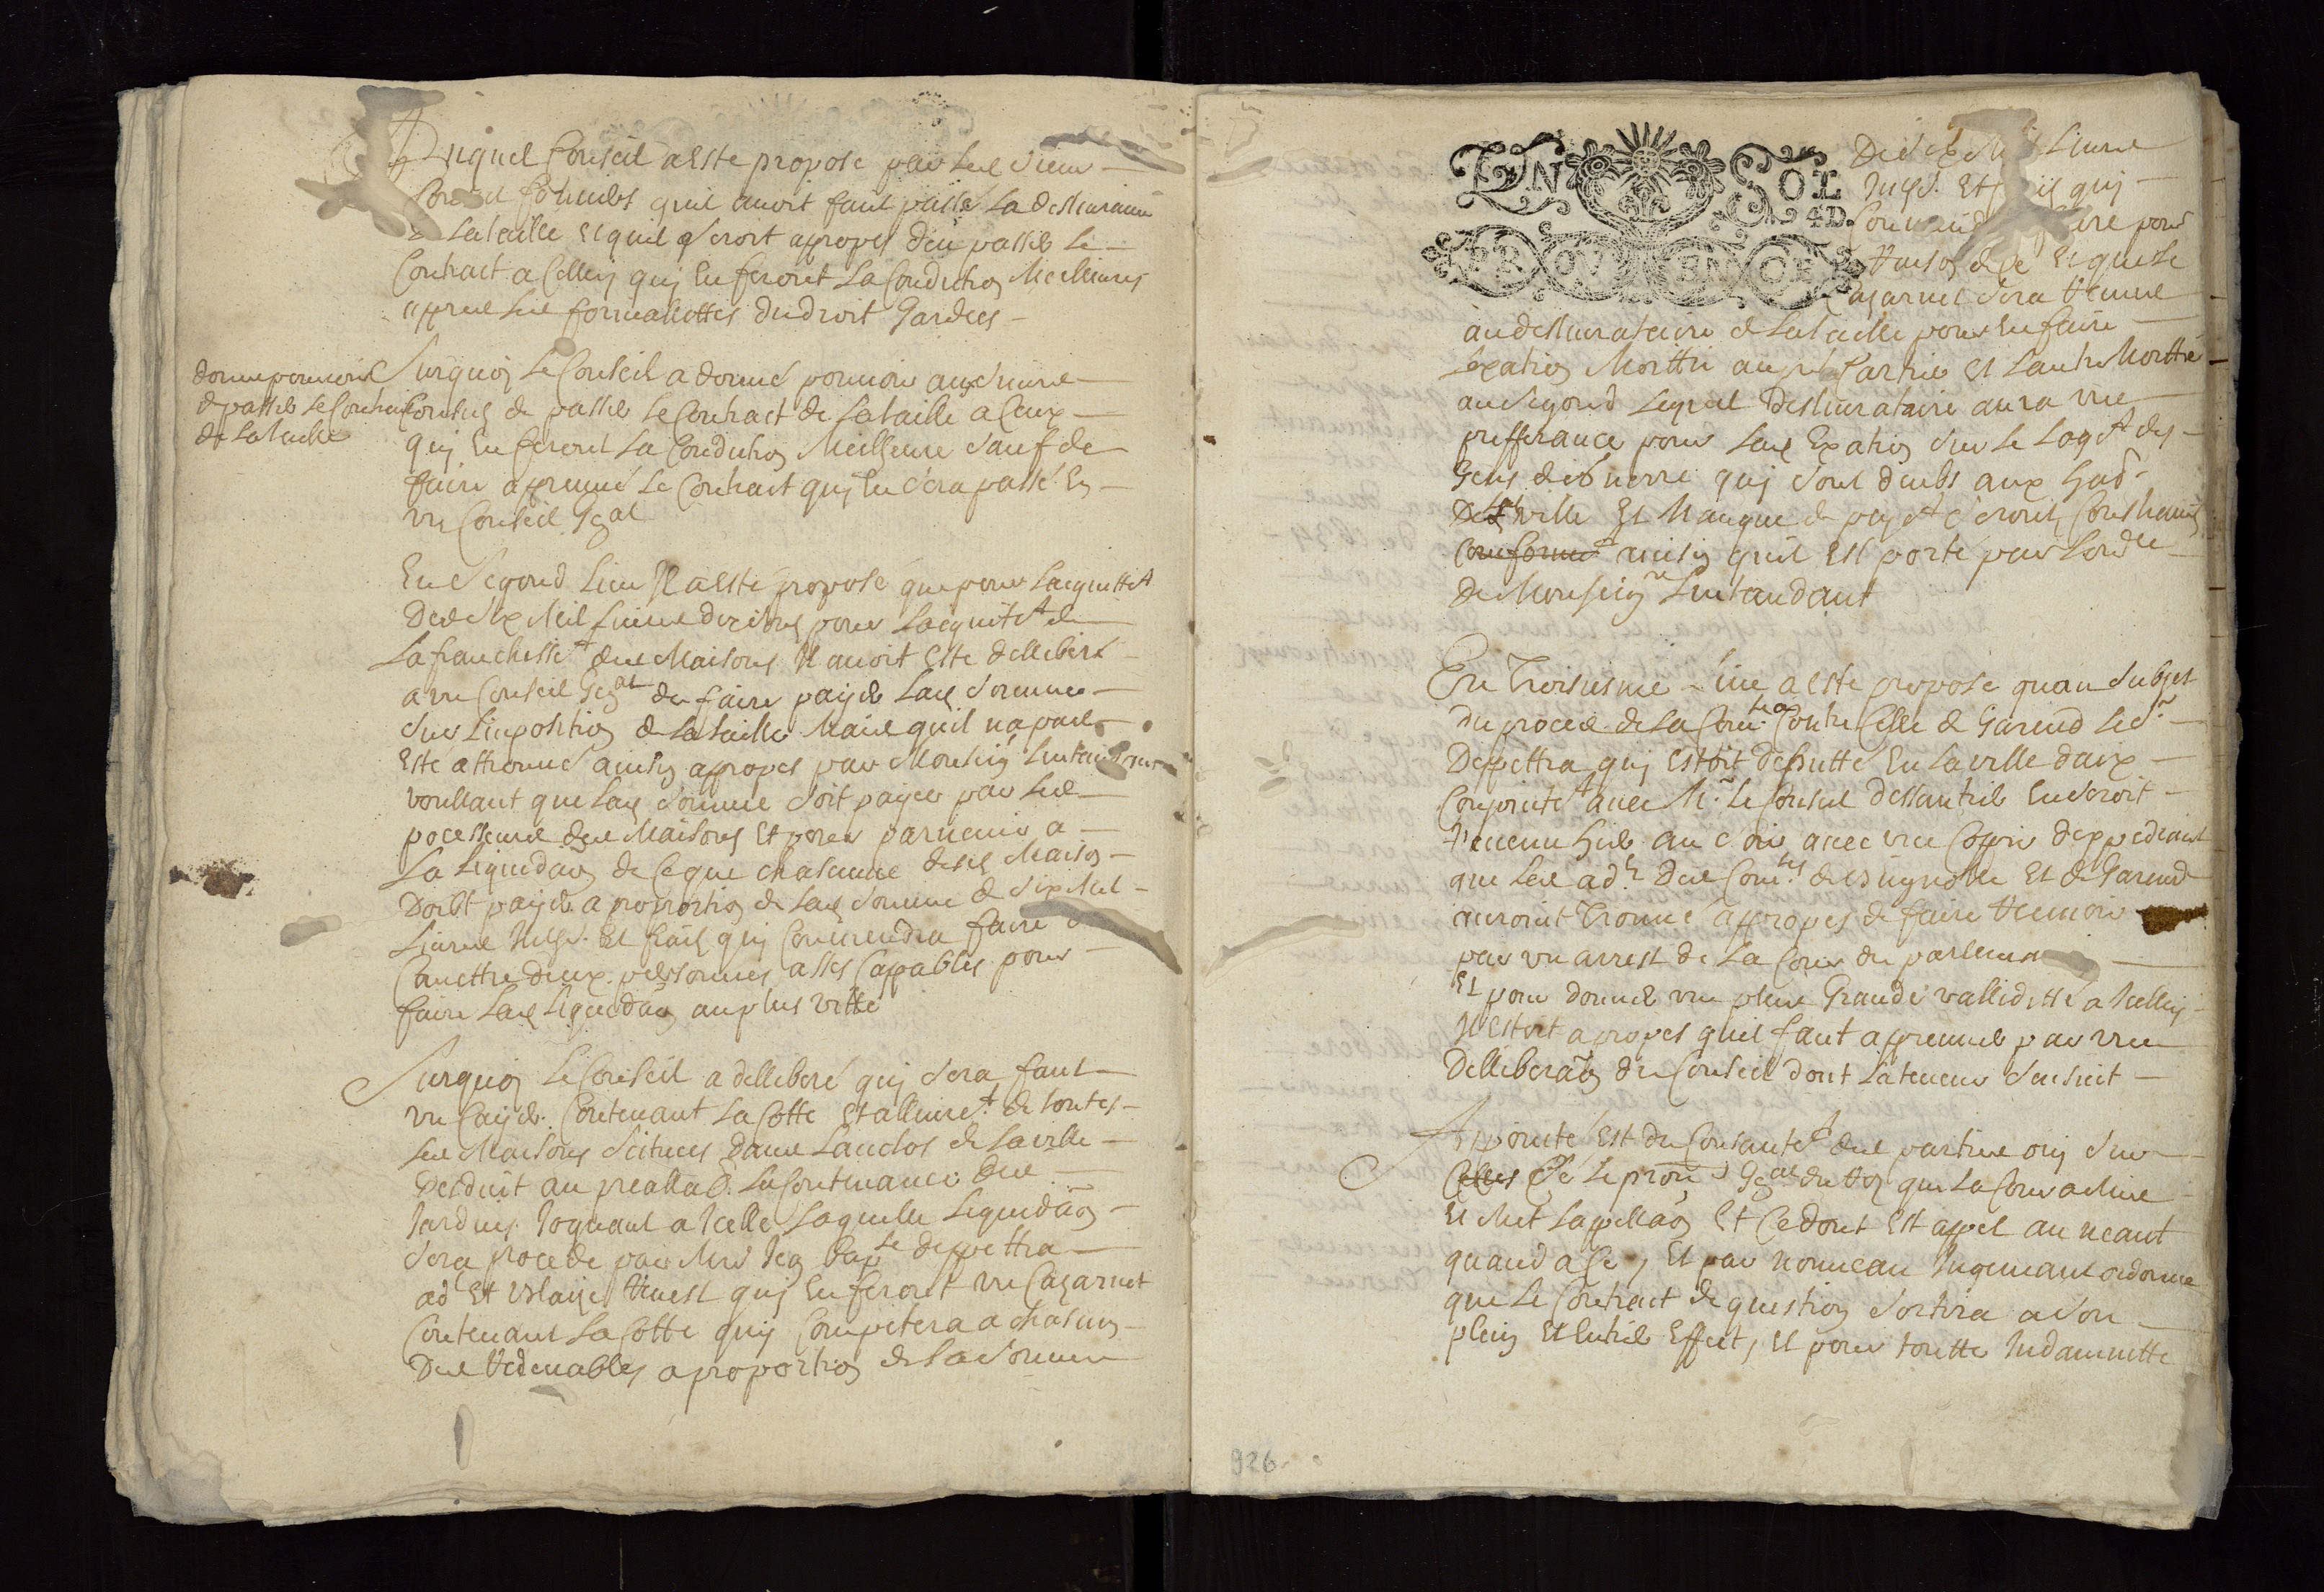 Auquel Conseil a este propose par les sieurs
Consulz quil avoit faut passer La deslivrance
de La taille et quil seroit appropos den passer le
Contract a Celluy quy en feront La Condition Meilleures
appres les formallittes du droit Gardees
donne pouvoir
de passer le Contract
de La taille
Surquoy Le Conseil a donné pouvoir aux sieurs
Consulz de passer le Contract de La taille a Ceux
quy en feront La Condition Meilleure sauf de
faire appreuver le Contract quy en sera passé En
un Conseil Gnal
En segond Lieu Il a esté propose que pour Lacquittet
De six Mil Livres pour Lacquitet de
La franchisset des Maisons Il avoit este delliberé
a un Conseil Gnal de faire payer Lad somme
sur Limposition de La taille Mais quil na pas
Este attrouvé ainsy appropos par Monseigr Lintandant
voullant que Lad somme soit payée par les
pocesseurs des Maisons Et pour parvenir a
La Liquidaõn de Ce que chascune desd Maison
Doibt payer a proportion de Lad somme de six Mil
Livres Et fraiz quy Conviendra faire
Comettre deux personnes asses Cappables pour
faire Lad Liquidaõn au plus vitte
Surquoy Le Conseil a dellibere quy sera faut
un Cayer Contenant La Cotte Et allivret de toutes
Les Maisons scitues dans Lanclos de La ville
Desduit au preallab. La Contenance des
Jardins Joignant a Icelle Laquelle Liquidaõn
sera procede par Mre Jean Bapte Deppettra
ad Et Blaise quy en feront un Cazarnet
Contenant La Cotte quy Competera a chascun
Des Redevables a proportion de La somme
GN SOL
4 D.
PROVENCE
De six Mil Livres
Et quy
Conviendra faire pour
Et que Le
Cazarnet sera Remis
au deslivrataire de La taille pour En faire
Lexation Moittié au pr Cartier Et Lautre Moittié
au segond Lequel Deslivrataire aura une
prefferance pour Lad Exation sur Le Logt des
Gens de Guerre quy sont deubs aux had.
De lad ville Et Manque de payt seront Constraints
Conforme ainsin quil Est porté par Lordce
De Monseigr Lintandant
En Troisiesme Lieu a este propose quau subjet
Du proces de La Comte Contre Celle de Garend Le Sr
Deppettra quy Estoit deputte En La ville daix
Conjointet avec Mr Le Consul En seroit
Revenu hier au soir avec une Coppie dexpediant
que Les adts des Comtes de Brignolle Et de Garend
auroint Trouvé appropos de faire Recevoir
par un arrest de La Cour du parlement
Et pour donner une plus Grande vallidité a Icelluy
Il Estoit apropos quil faut appreuver par une
Delliberaõn du Conseil dont La teneur sensuit
Appointé Est du Consantet des parties ouy sur
Ce Le pron Gnal du Roy que La Cour a Mis
Et Met Lapellaõn Et Ce dont Est appel au neant
quand a Ce, Et par nouveau Jugement ordonne
que Le Contract de question sortira a son
plein Et Entier Effect, Et pour toutte Indamnitte
926